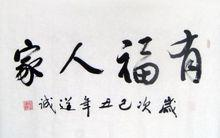 有福人家
歲次己丑年道诚